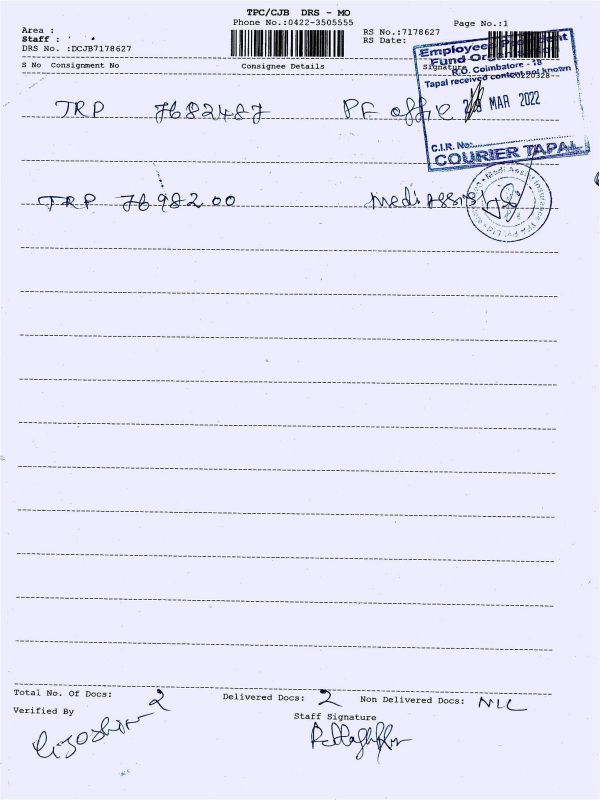 TPC/CJB DRS - MO
Phone No.:0422-3505555 Page No.:1
Area :
Staff : RS No.:7178627
DRS No. :DCJB7178627 RS Date:
S No Consignment No Consignee Details Signature
Employees Provident
Fund Organisation
R.O. Coimbatore - 18
Tapal received content not known
MAR 2022
C.I.R. No:
COURIER TAPAL
TRP 7682487 PF office
TRP 7698200 Medi Assist
Medi Assist Insurance TPA Pvt Ltd
Total No. Of Docs: 2 Delivered Docs: 2 Non Delivered Docs: NIL
Verified By Staff Signature